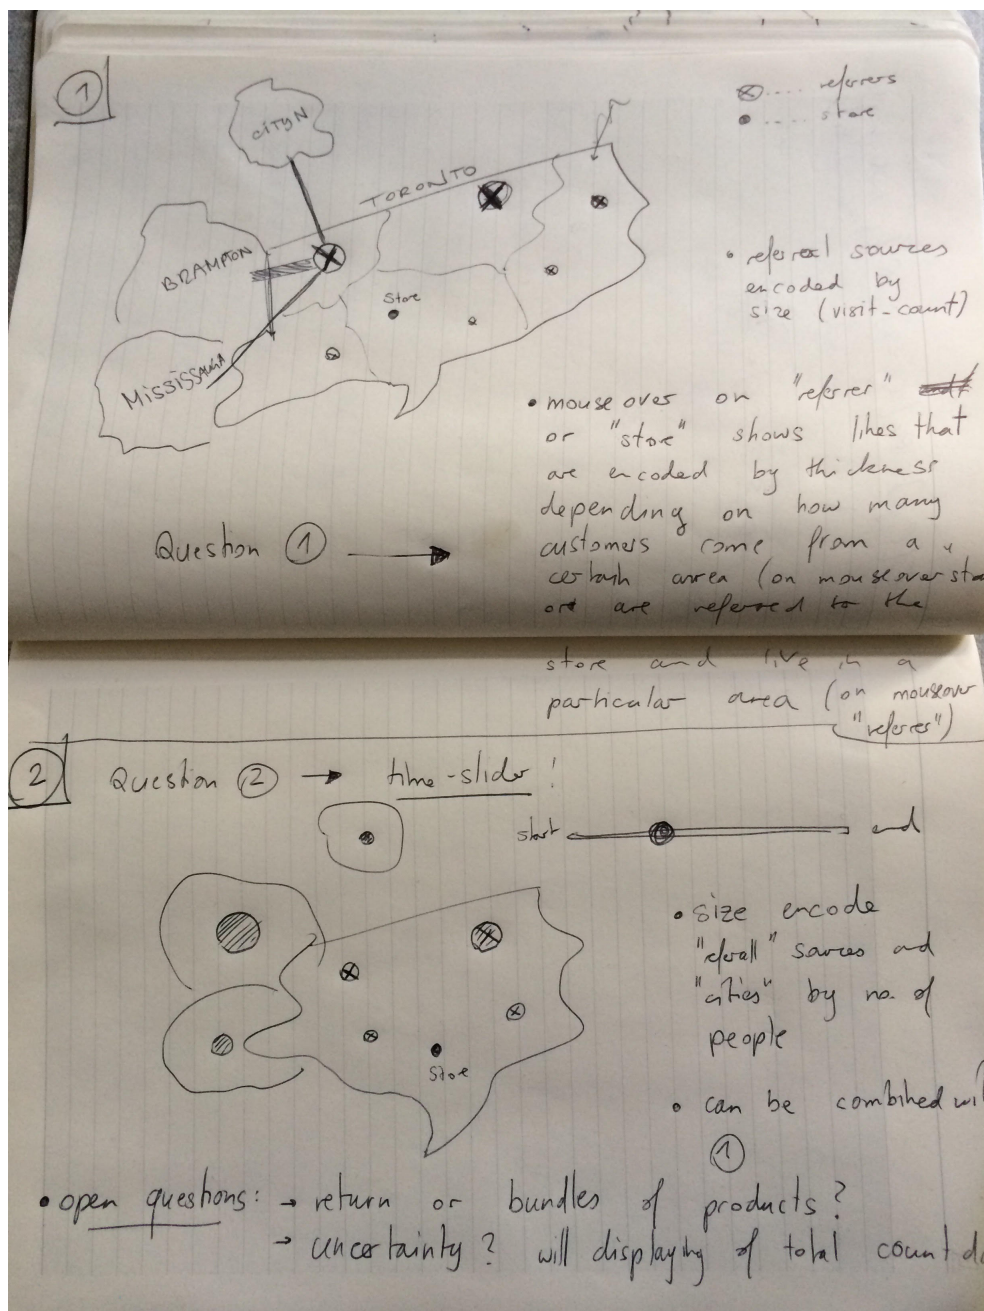 1
CITY N
TORONTO
BRAMPTON
Store
MISSISSAUGA
⊗ .... referrers
● .... store
• referral sources
encoded by
size (visit-count)
• mouse over on "referrer"
or "store" shows lines that
are encoded by thickness
depending on how many
customers come from a
certain area (on mouseover
are referred to the
store and live in a
particular area (on mouseover
"referrer")
Question ① →
2
Question ② → time-slider!
start
end
Store
• size encode
"referall" sources and
"cities" by no. of
people
• can be combined
①
• open questions: → return or bundles of products?
→ uncertainty? will displaying of total count